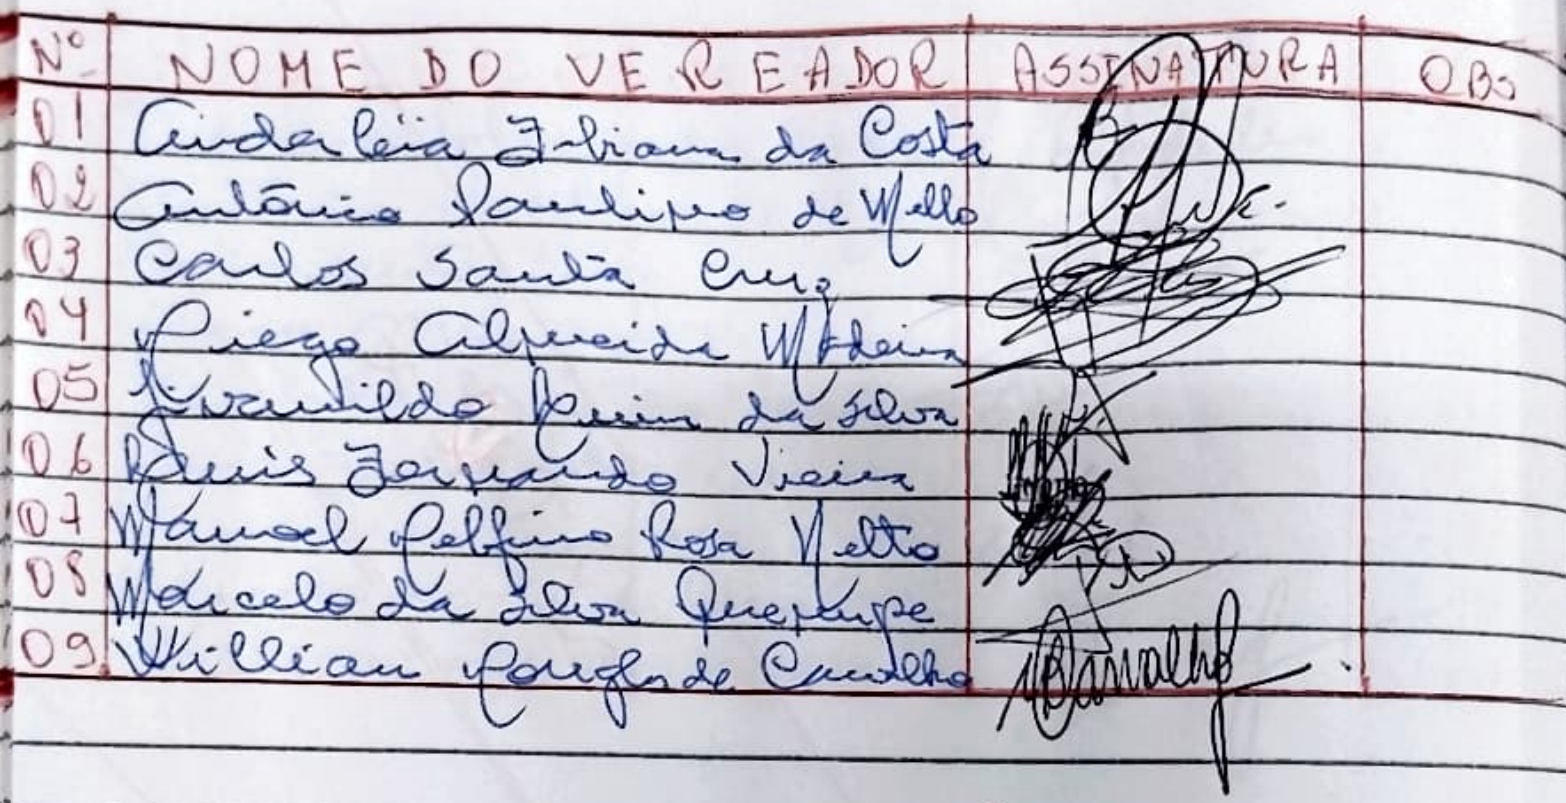 Nº NOME DO VEREADOR ASSINATURA OBS
01 Anderléia Fabiana da Costa
02 Antônio Paulino de Mello
03 Carlos Santa Cruz
04 Diego Almeida Madeira
05 da Silva
06 Luis Fernando Vieira
07 Manoel Delfino Rosa Netto
08 Marcelo da Silva
09 Willian Douglas de Carvalho Carvalho